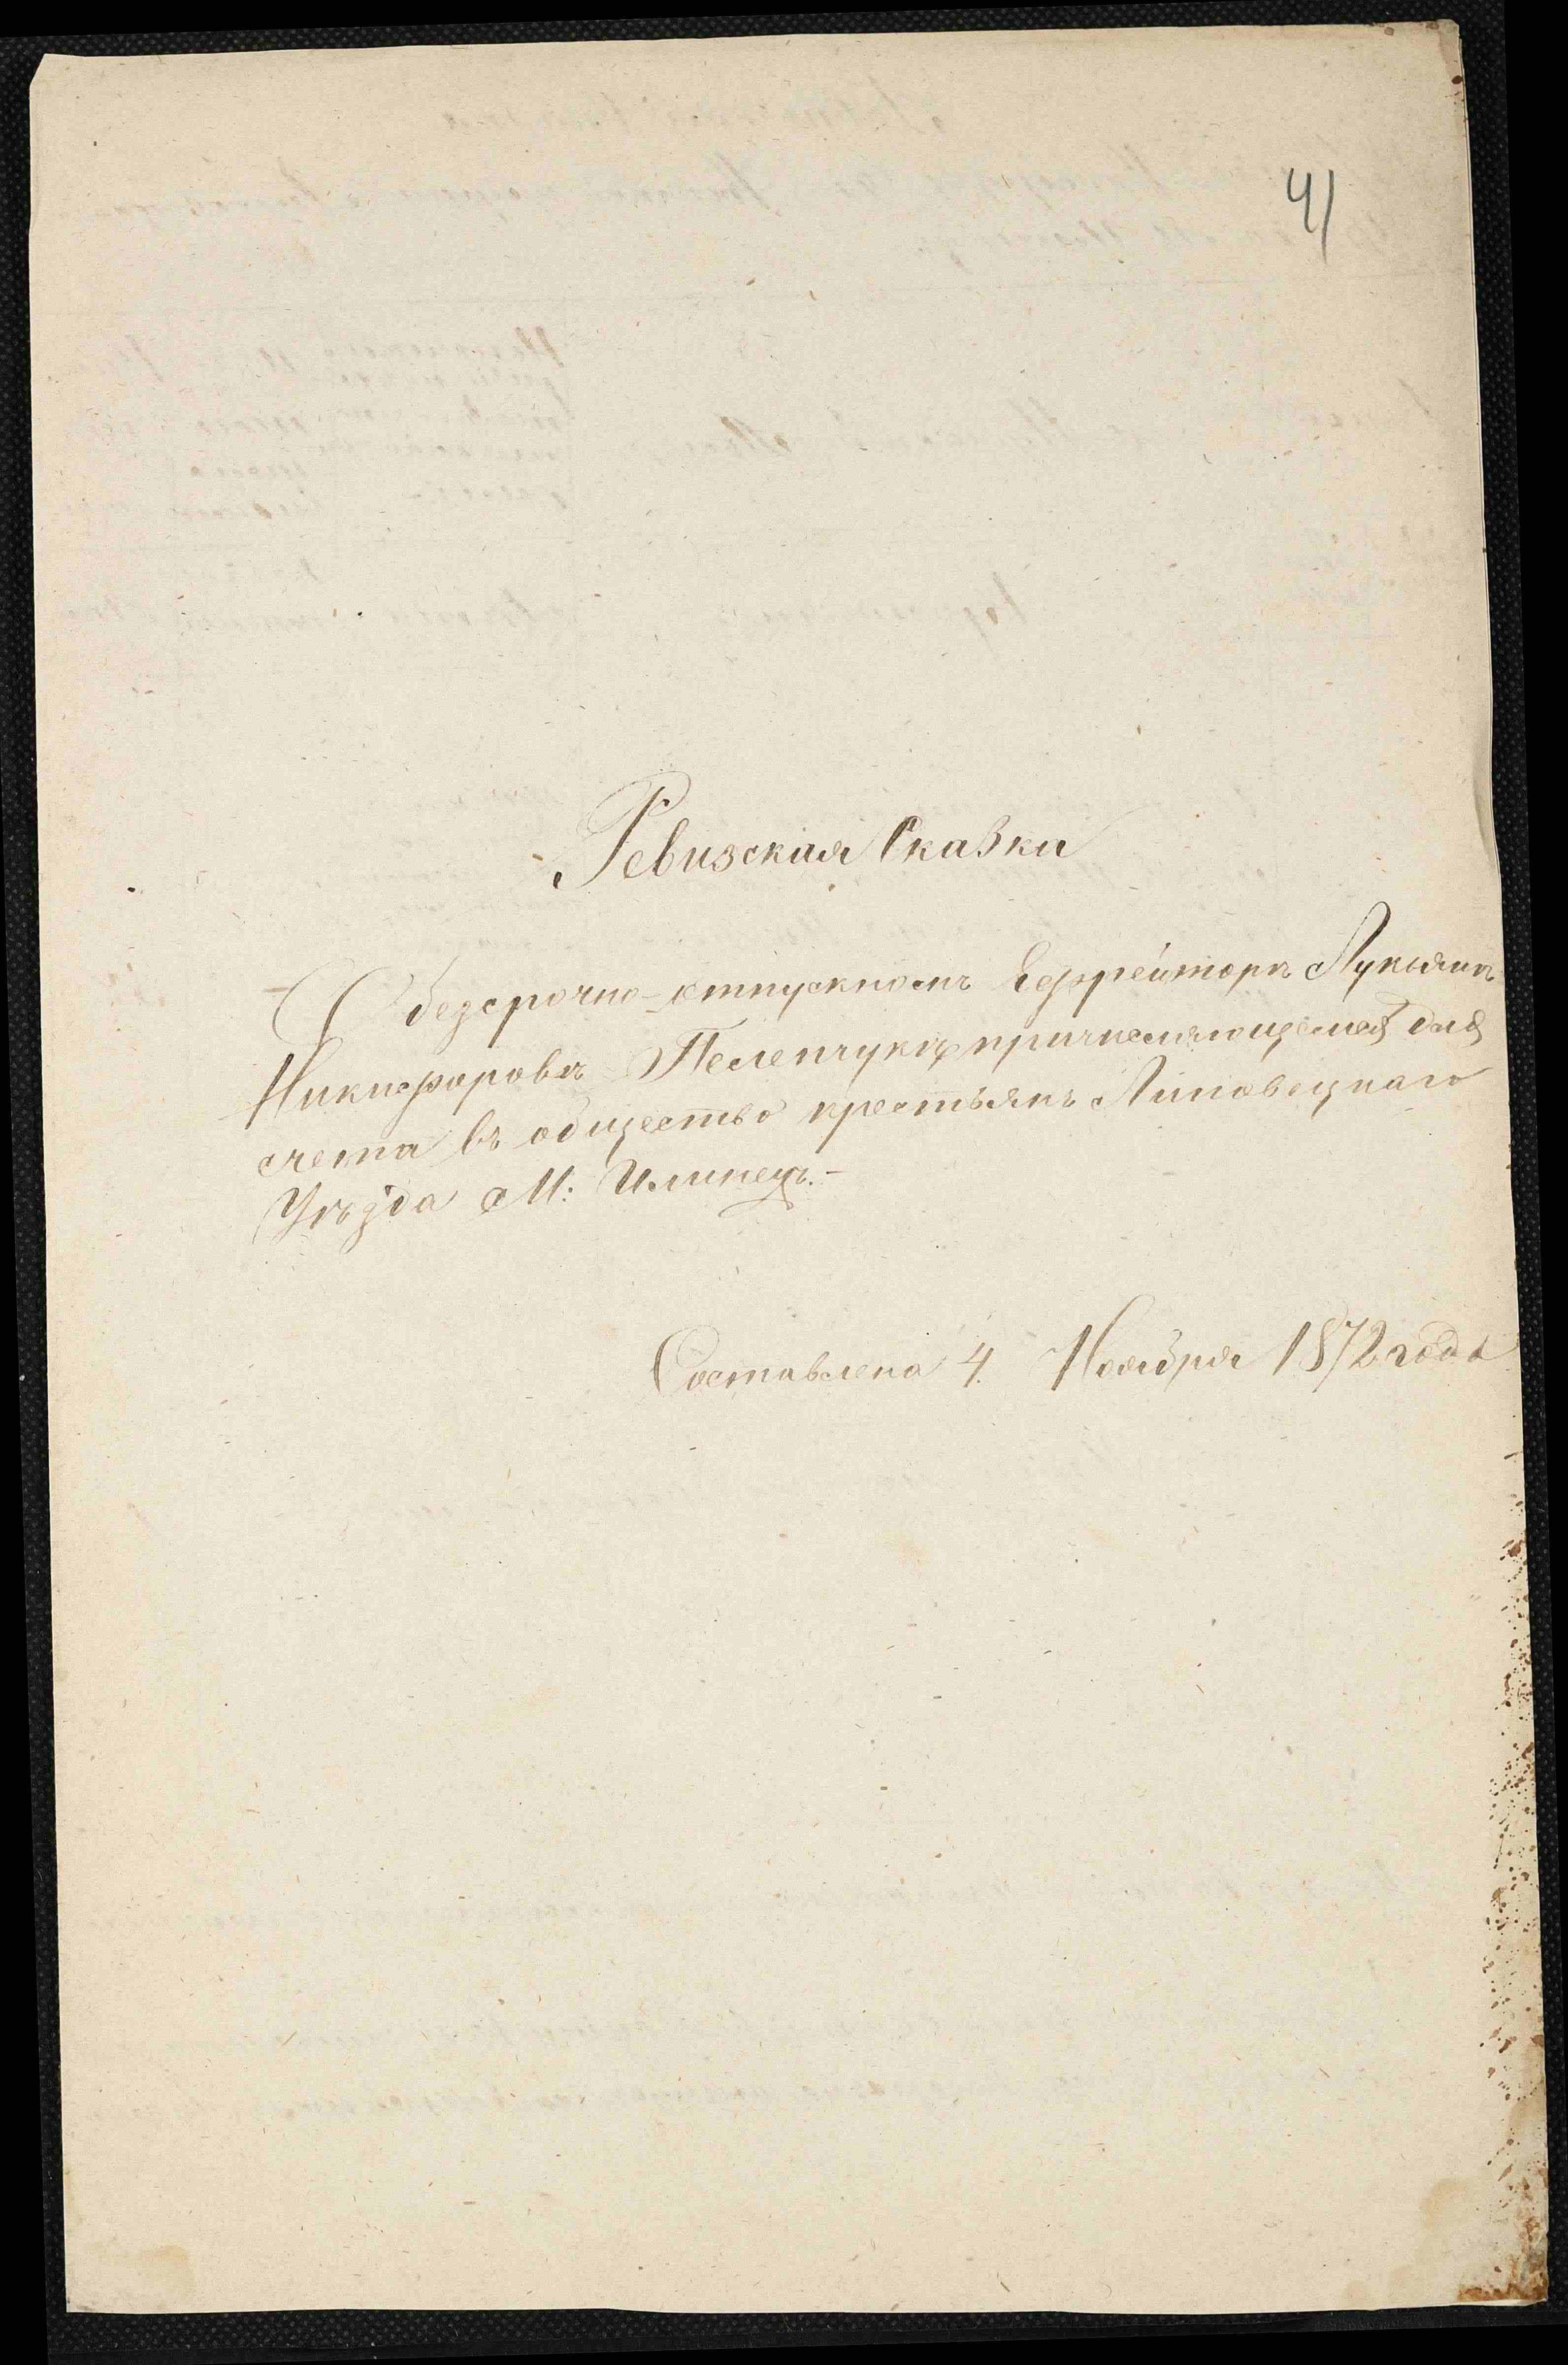 41
Ревизская Сказка
О безсрочно-отпускномъ Ефрейторѣ Лукьянѣ
Никифоровѣ Пелепчукѣ причисляющемся для
счета въ общество крестьянъ Липовецкаго
Уѣзда М: Илинецъ.-
Составлена 4 Ноября 1872 года